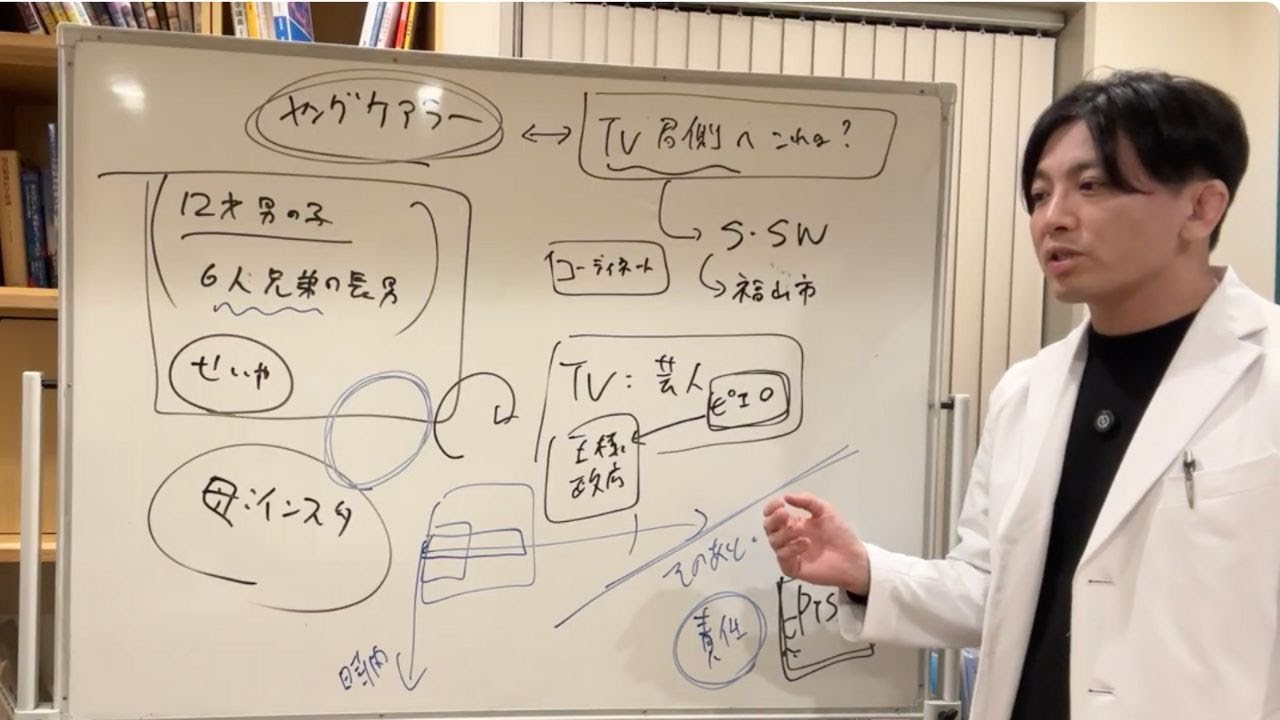 ヤングケアラー
TV局側へこれは?
12才男の子
6人兄弟の長男
せいや
S・SW
コーディネート
福山市
TV:芸人
ピエロ
王様
政府
母:インスタ
そのあと
時間
責任
PTS